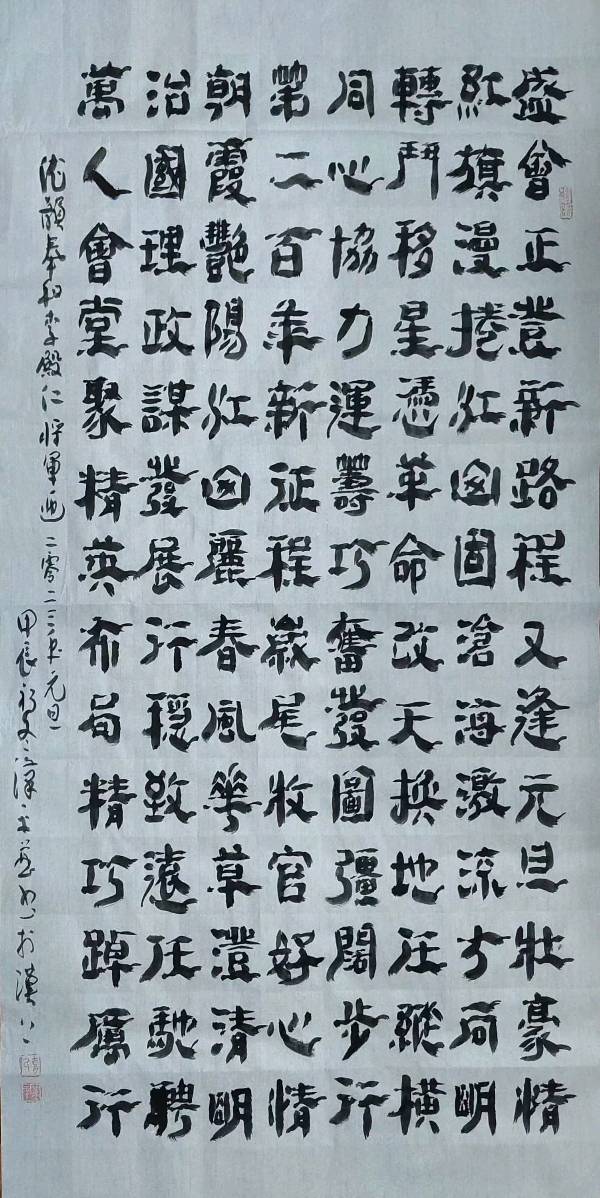 盛會正新路程又逢元旦壯豪情
紅旗漫捲紅固滄海激流方向明
轉鬥移星憑革命改天換地任縱橫
同心協力運籌巧奮發圖彊闊步行
第二百年新征程歲尾收官好心情
朝霞艷陽紅麗春風華草澄清明
治國理政謀發展行穩致遠任馳騁
萬人會堂聚精英布局精巧踔厲行
依韻奉和李殿仁將軍迎二零二三年元旦
甲辰初於漢上